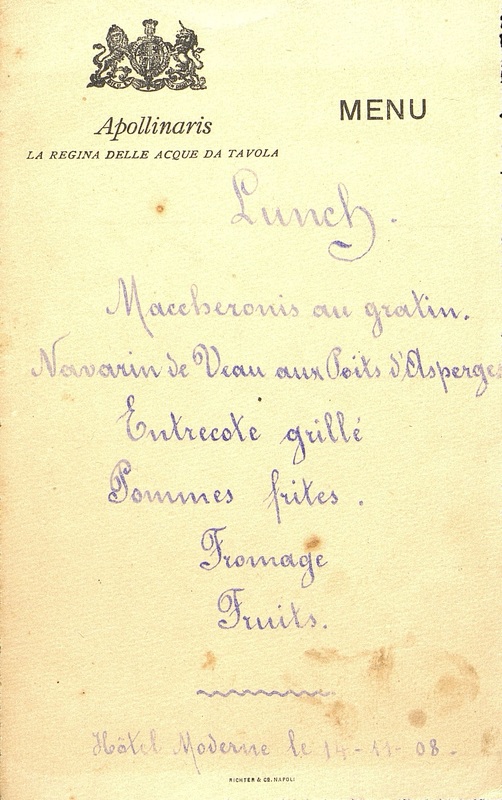 Apollinaris
LA REGINA DELLE ACQUE DA TAVOLA
MENU
Lunch.
Maccheronis au gratin.
Navarin de Veau aux Poits d'Asperges
Entrecote grillé
Pommes frites.
Fromage
Fruits.
Hôtel Moderne le 14-11-08.
RICHTER & CO. NAPOLI